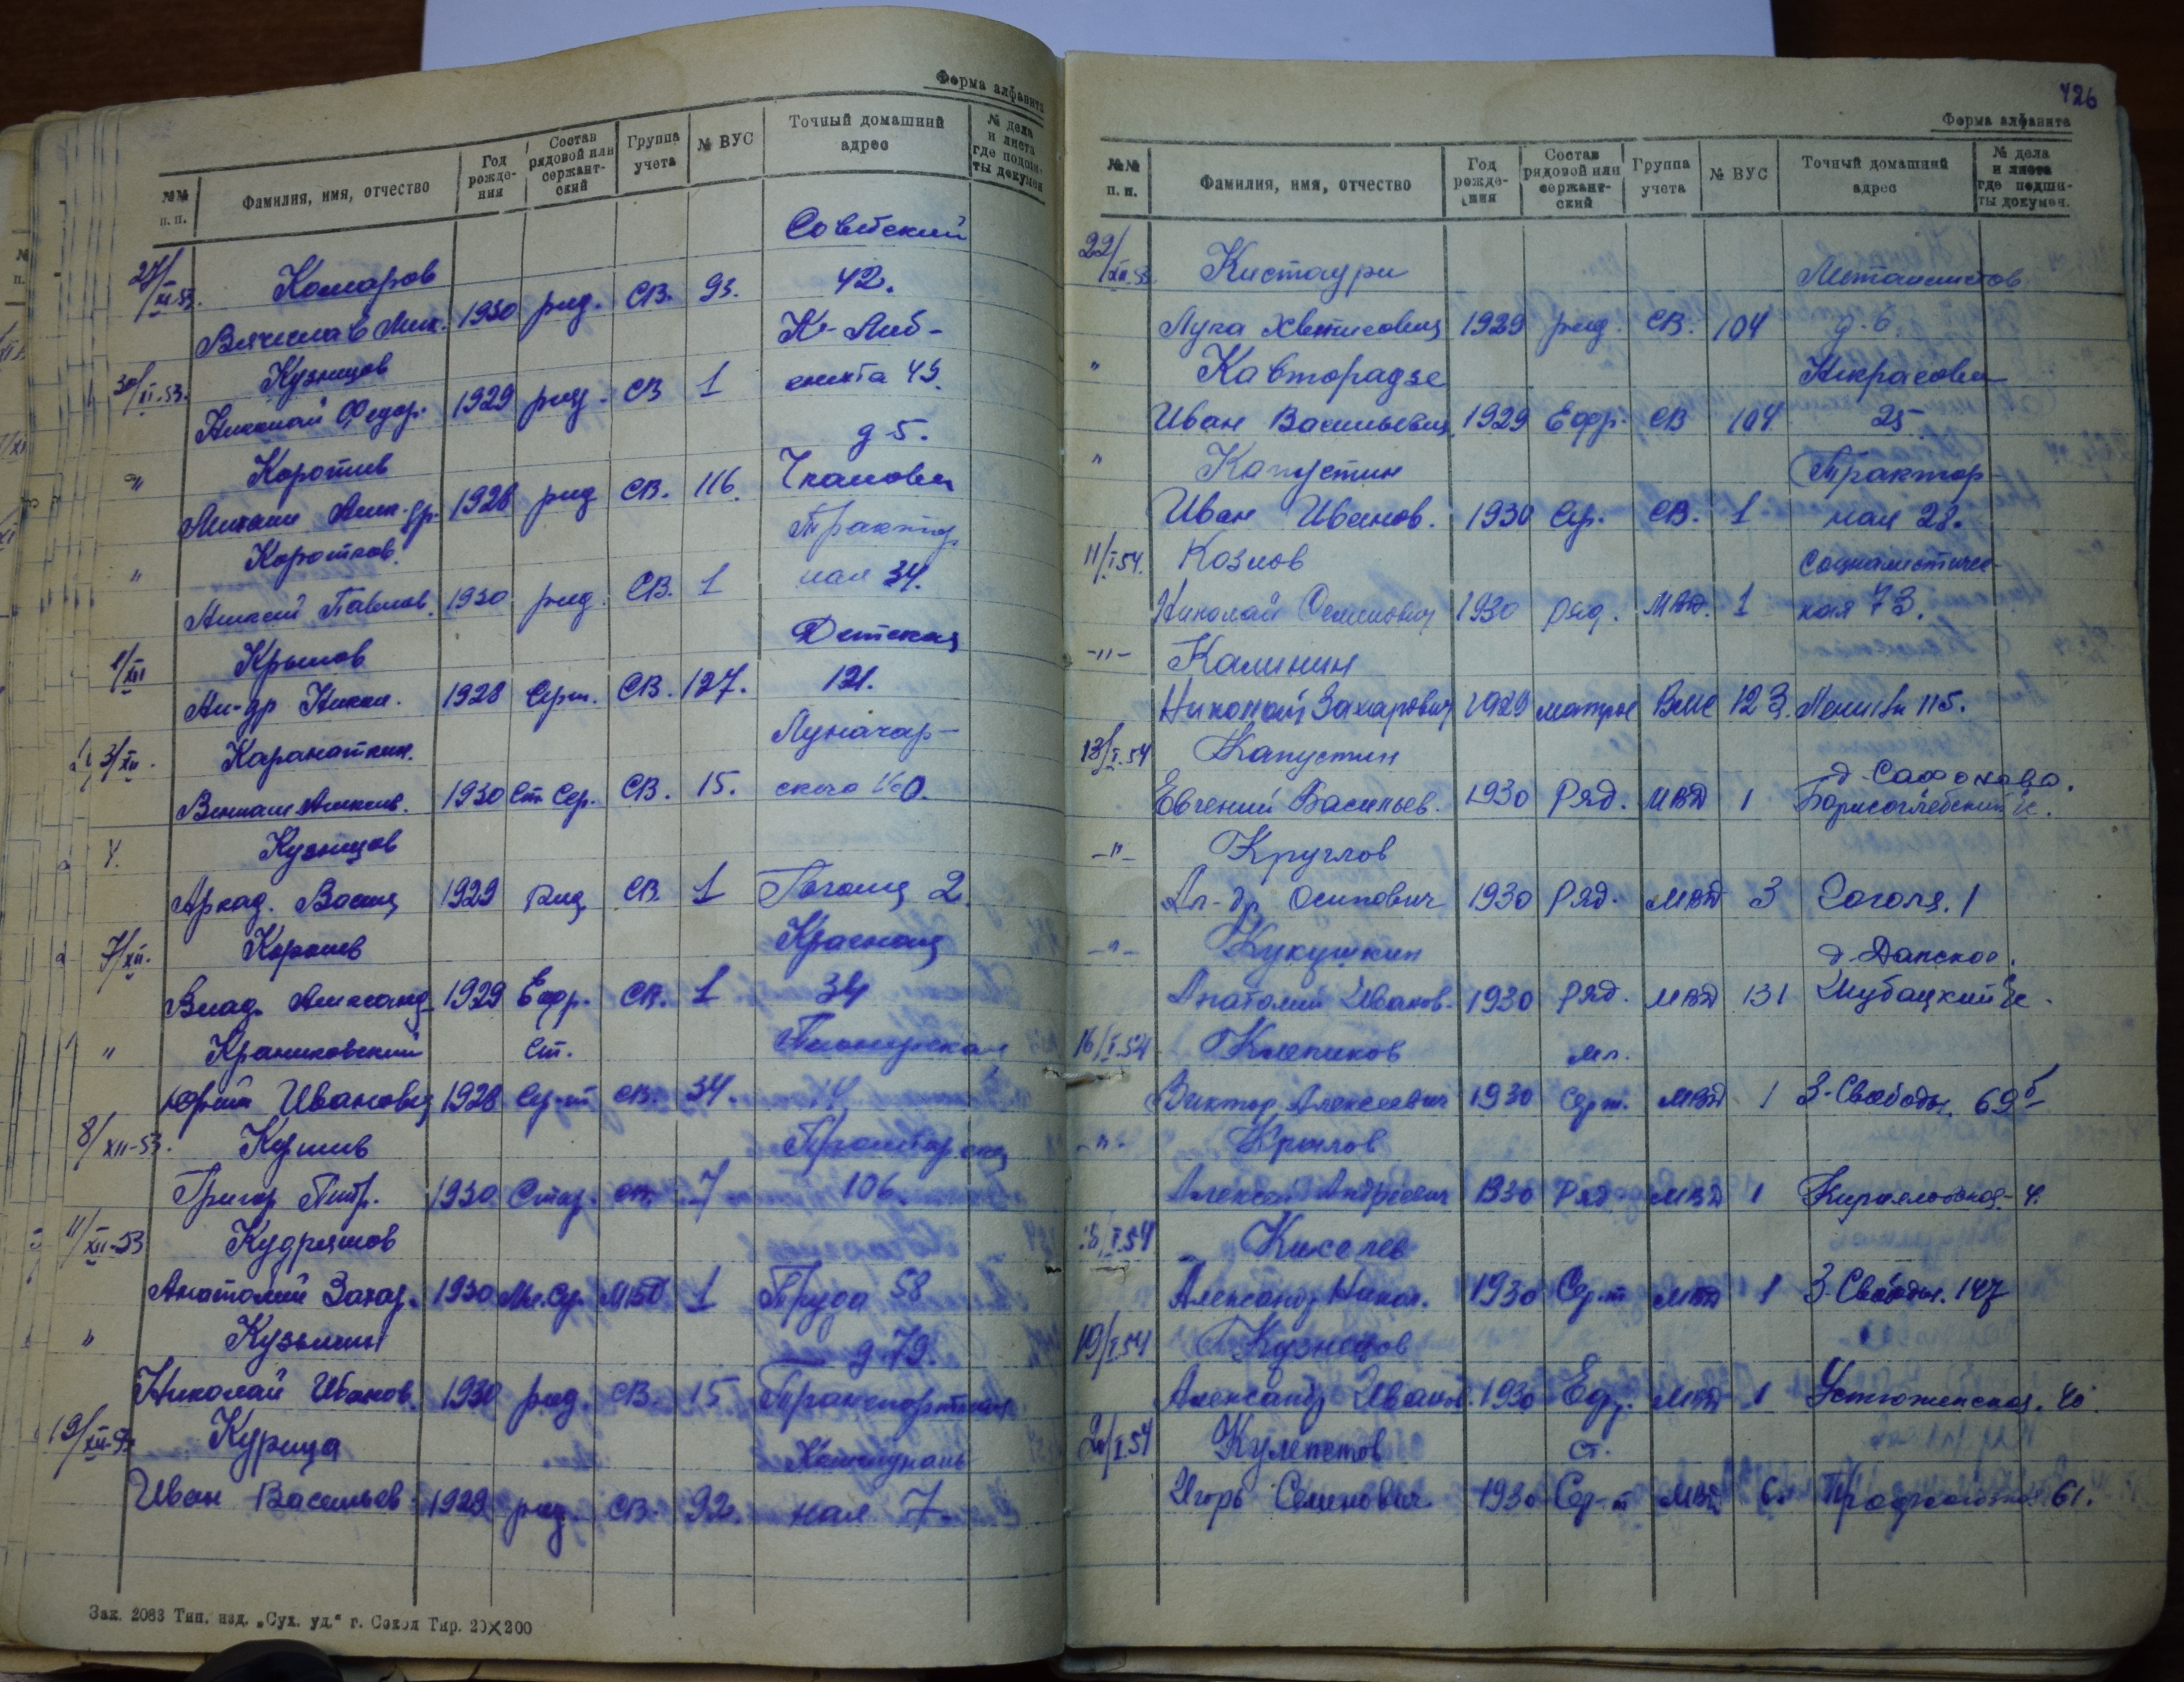 Форма алфавита
№№ п. п. Фамилия, имя, отчество Год рождения Состав рядовой или сержантский Группа учета № ВУС Точный домашний адрес № дела и листа где подши- ты докумен.
Советский
27/XI-53. Комаров 42.
Вячеслав Ник. 1930 ряд. СВ. 93.
К-Либ-
30/XI-53. Кузнецов кнехта 49.
Николай Федор. 1929 ряд. СВ 1
д 5.
" Коротков Чкалова
1928 ряд СВ. 116.
Трактор
" Коротков. ная 34.
Алексей Павлов. 1930 ряд. СВ. 1
Детская
1/XII Крылов 121.
Ал-др Никол. 1928 Серж. СВ. 127.
Луначар-
3/XII.
1930 Ст. Сер. СВ. 15. ского
4. Кузнецов
Аркад. Васил 1929 Ряд СВ. 1 Гоголя 2.
7/XII. Королев Красная
Влад. Александ 1929 Ефр. СВ. 1 34
" ст. Пионерская
Юрий Иванович 1928 Сер-т СВ. 34.
8/XII-53. Пролетарская
Григор Петр. 1930 СВ. 7 106.
11/XII-53 Кудряшов
Анатолий Захар. 1930 Мл. Ср. МВД 1 Труда 58
" Кузьмин д. 79.
Николай Иванов. 1930 ряд. СВ. 15 Транспортная
19/XII-53 Курица Коммуналь-
Иван Васильев 1929 ряд. СВ. 92. ная 7
Зак. 2083 Тип. изд. „Сух. уд.“ г. Сокол Тир. 20X200
426
Форма алфавита
№№ п. п. Фамилия, имя, отчество Год рожде- ния Состав рядовой или сержант- ский Группа учета № ВУС Точный домашний адрес № дела и листа где подши- ты докумен.
22/XII-53 Кистаури Металлистов
Лука 1929 ряд. СВ. 104 д. 6.
" Кавторадзе Некрасова
Иван Васильевич 1929 Ефр. СВ 104 25
" Капустин Трактор-
Иван Иванов. 1930 Сер. СВ. 1 ная 28.
11/I 54. Козлов Социалистичес-
Николай Семенович 1930 ряд. МВД. 1 кая 73.
-"- Калинин
Николай Захарович 1929 матрос ВМС 123. Ленина 115.
13/I.54 Капустин д. Сафоново.
Евгений Васильев. 1930 Ряд. МВД 1 Борисоглебский с/с.
-"- Круглов
Ал-др Осипович 1930 Ряд. МВД 3 Гоголя. 1
-"- Кукушкин
Анатолий Иванов. 1930 Ряд. МВД 131
16/I.54 Клепиков мл.
Виктор Алексеевич 1930 Серж. МВД 1 З-Свободы. 69б
-"- Крылов
Алексей Андреевич 1930 Ряд МВД 1 Кирилловская- 4.
18/I.54 Киселев
Александр Никол. 1930 Сер-т МВД 1 З-Свободы. 147
19/I.54 Кузнецов
Александр Иванов. 1930 Ефр. МВД 1 Устюженская. 40.
20/I.54 ст.
Игорь Семенович 1930 Сер-т МВД 6. 61.